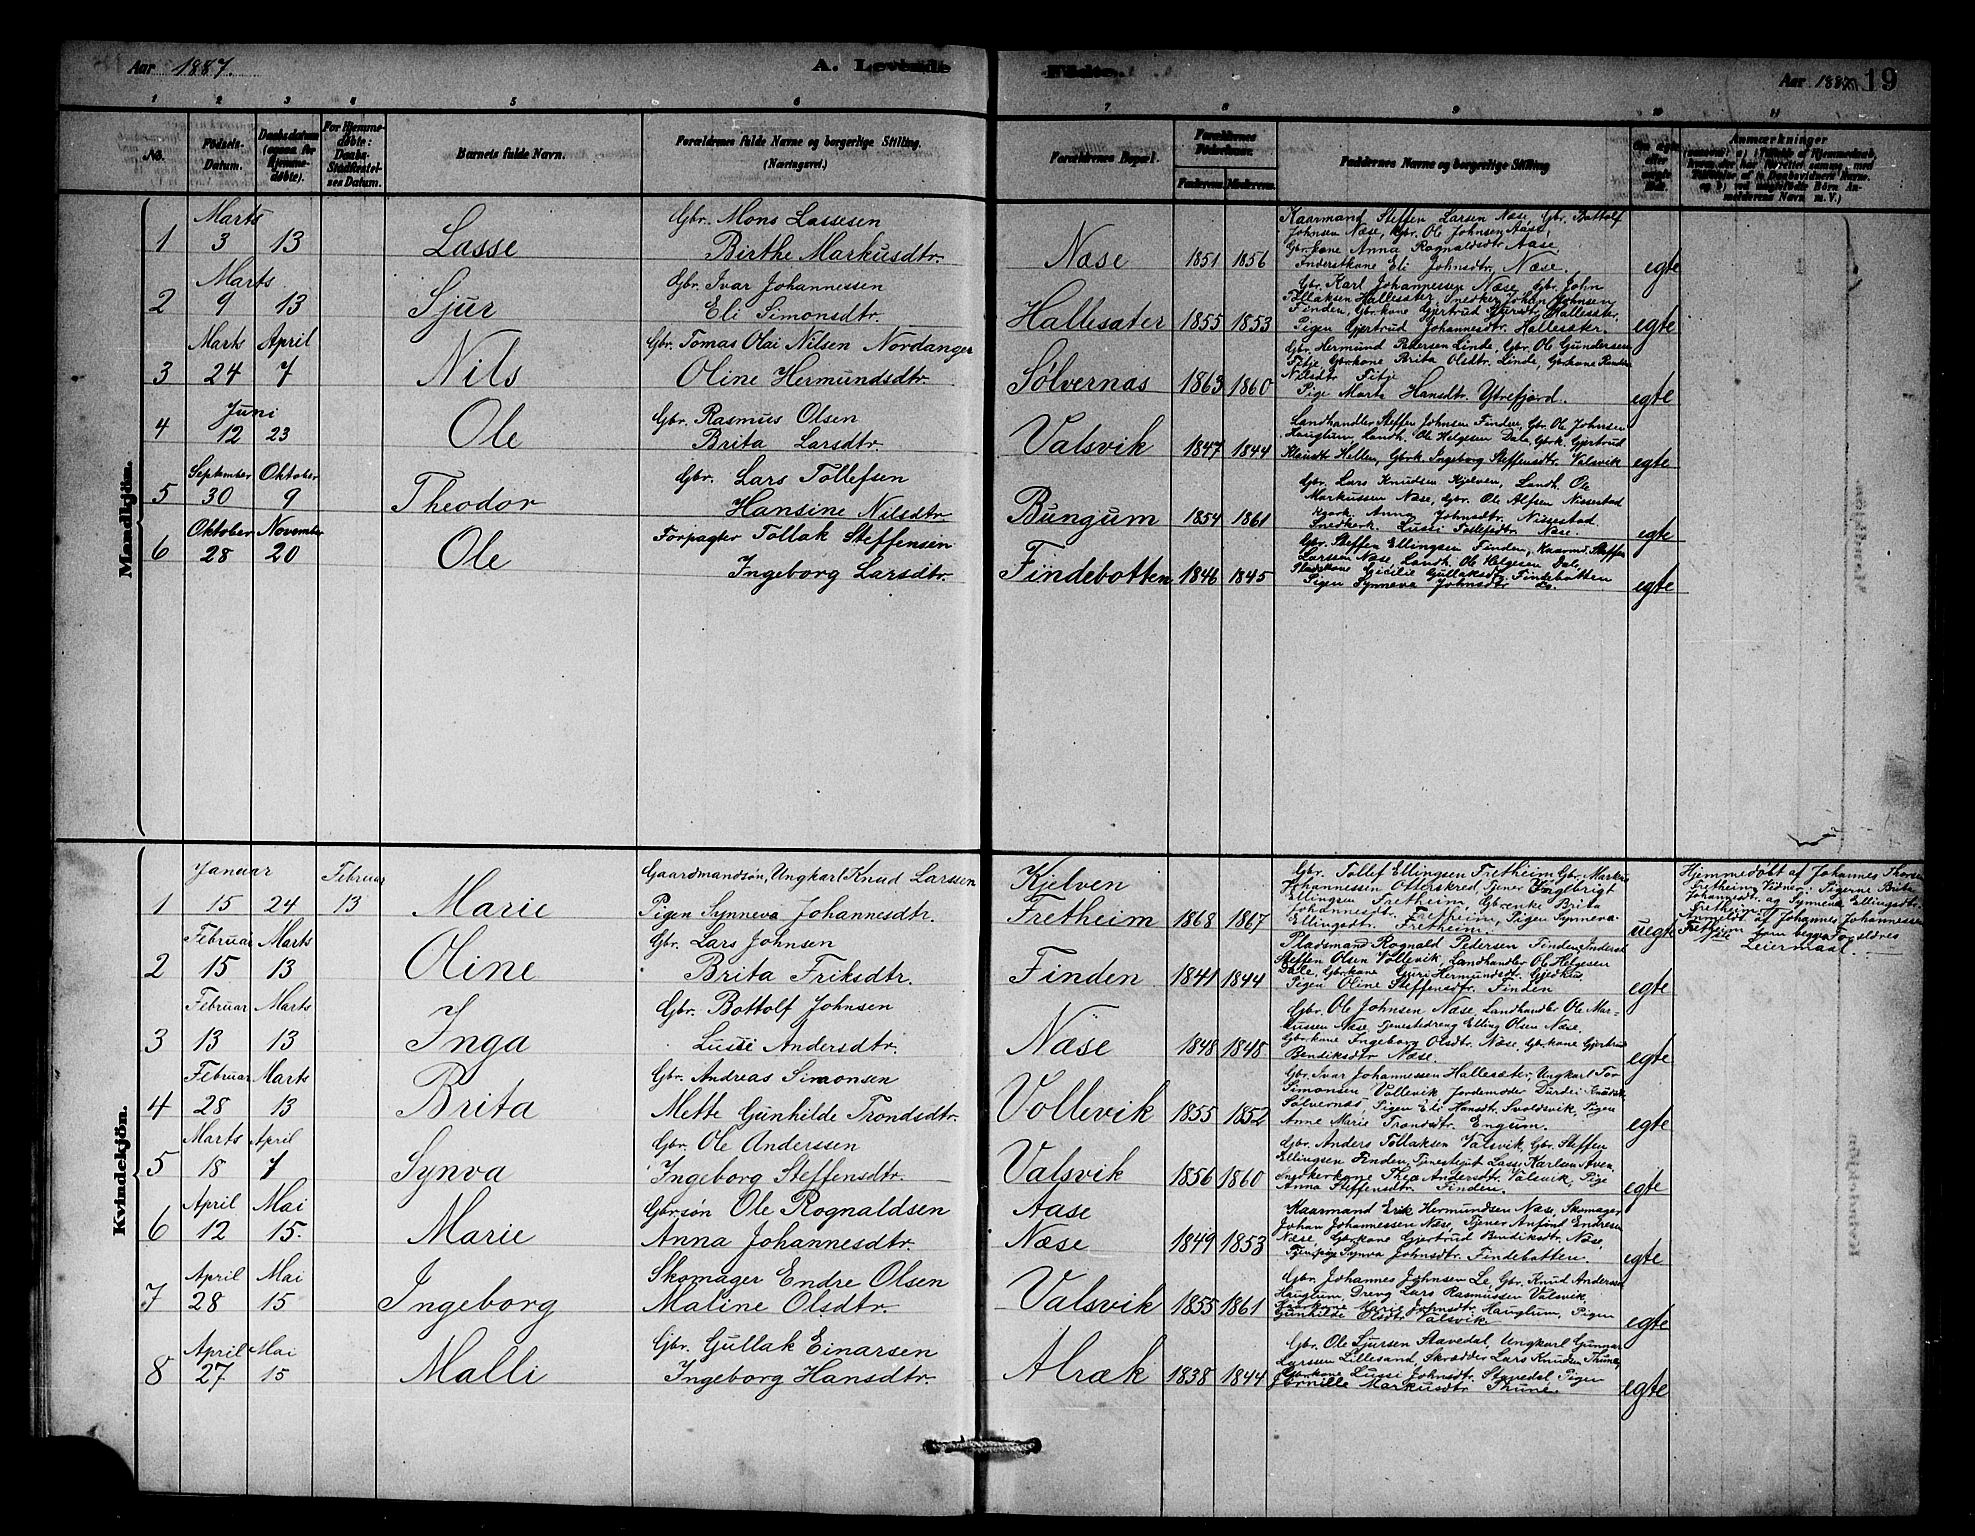 Aar 1887.
A. Levende
Fødte.
Aar 1887.
19
1 2 3 4 5 6 7 8 9 10 11
No.
Födsels-Datum.
Daabsdatum (ogsaa for Hjemme-døbte).
For Hjemme-døbte: Daabs-Stadfæstel-ses Datum.
Barnets fulde Navn.
Forældrenes fulde Navne og borgerlige Stilling. (Næringsvei.)
Forældrenes Bopæl.
Forældrenes Födselsaar.
Faderens. Moderens.
Faddernes Navne og borgerlige Stilling
Om ægte eller uægte født.
Anmærkninger
Mandkjön.
Marts
1 3 13 Lasse
Gbr. Mons Lassesen
Birthe Markusdtr.
Næse 1851 1856
Kaarmand Steffen Larsen Næse, Gbr. Bottolf
Johnsen Næse, Gbr. Ole Johnsen Aase,
Gbr.kone Anna Rognaldsdtr Aase,
Inderstkone Eli Johnsdtr. Næse.
egte
Marts
2 9 13 Sjur
Gbr. Ivar Johannessen
Eli Simonsdtr.
Hallesæter 1855 1853
Gbr. Karl Johannessen Næse, Gbr. John
Tollaksen Hallesæter, Snedker Johan Johnsen
Finden, Gbr.kone Gjertrud Sjursdtr. Hallesæter,
Pigen Gjertrud Johannesdtr. Hallesæter.
egte
Marts April
3 24 7 Nils
Gbr. Tomas Olai Nilsen Nordanger
Oline Hermundsdtr.
Sølvernæs 1863 1860
Gbr. Hermund Pedersen Linde, Gbr. Ole Gundersen
Fitje, Gbrkone Brita Olsdtr. Linde, Gbrkone
Nilsdtr Fitje
Pige Marta Hansdtr. Ytrefjord.
egte
Juni
4 12 23 Ole
Gbr. Rasmus Olsen
Brita Larsdtr.
Valsvik 1847 1844
Landhandler Steffen Johnsen Finden, Gbr. Ole Johnsen
Hauglum, Landh. Ole Helgesen Dale, Gbrk. Gjertrud
Hellen, Gbrk. Ingeborg Steffensdtr. Valsvik
egte
September Oktober
5 30 9 Theodor
Gbr. Lars Tollefsen
Hansine Nilsdtr.
Bungum 1854 1861
Gbr. Lars Knudsen Kjelven, Landh. Ole
Markussen Næse, Gbr. Ole Alfsen Nissestad
Anna Johnsdtr. Nissestad
Snedkerk. Lussi Tollefsdtr Næse.
egte
Oktober November
6 28 20 Ole
Forpagter Tollak Steffensen
Ingeborg Larsdtr.
Findebotten 1846 1845
Gbr. Steffen Ellingsen Finden, Kaarmd. Steffen
Larsen Næse, Landh. Ole Helgesen Dale,
Pladskone Cicilie Gullaksdtr Findebotten
Pigen Synneva Johnsdtr Do.
egte
Kvindekjön.
Januar Februar
1 15 24 13 Marie
Gaardmandsøn, Ungkarl Knud Larssen
Pigen Synneva Johannesdtr.
Kjelven
Fretheim 1868 1867
Gbr. Tollef Ellingsen Fretheim Gbr. Markus
Johannessen Otterskred, Tjener Ingebrigt
Ellingsen Fretheim, Gbr.enke Brita
Johannesdt. Fretheim, Pigen Synneva
Ellingsdt. Fretheim.
uegte
Hjemmedöbt af Johannes Thorsen
Fretheim, Vidner: Pigerne Brita
Johannesdt. og Synneva Ellingsdtr.
Fretheim.
Anmeldt af Johannes Johannessen
Fretheim som begge Forældres
1ste Leiermaal.
Februar Marts
2 15 13 Oline
Gbr. Lars Johnsen
Brita Eriksdtr.
Finden 1841 1844
Pladsmand Rognald Pedersen Finden, Inderst
Steffen Olsen Vollevik, Landhandler Ole Helgesen
Dale, Gbrkone Guri Hermundsdt.
Pigen Oline Steffensdtr. Finden
egte
Februar Marts
3 13 13 Inga
Gbr. Bottolf Johnsen
Lussi Andersdtr.
Næse 1848 1848
Gbr. Ole Johnsen Næse, Landhandler Ole Mar-
kussen Næse, Tjenestedreng Elling Olsen Næse,
Gbrkone Ingeborg Olsdtr. Næse, Gbrkone Gjertrud
Bendiksdtr Næse.
egte
Februar Marts
4 28 13 Brita
Gbr. Andreas Simonsen
Mette Gunhilde Trondsdtr.
Vollevik 1855 1852
Gbr. Ivar Johannessen Hallesæter, Ungkarl Tor
Simonsen Vollevik Jordemoder Durdei
Sølvernæs, Pigen Eli Hansdt. Svoldsvik, Pigen
Anne Marie Trondsdtr. Engum.
egte
Marts April
5 18 7 Synva
Gbr. Ole Anderssen
Ingeborg Steffensdtr.
Valsvik 1856 1860
Gbr. Anders Tollaksen Valsvik, Gbr. Steffen
Ellingsen Finden, Tjenestegut Lasse Karlsen
Snedkerkone Thea Andersdtr. Valsvik, Pige
Anna Steffensdtr. Finden.
egte
April Mai
6 12 15. Marie
Gbr.søn Ole Rognaldsen
Anna Johannesdtr.
Aase
Næse 1849 1853
Kaarmand Erik Hermundsen Næse, Skomager
Johan Johannessen Næse, Tjener Anfind Endresen
Næse, Gbrkone Gjertrud Bendiksdtr. Næse,
Tjen.pige Synva Johnsdtr. Findebotten.
egte
April Mai
7 28 15 Ingeborg
Skomager Endre Olsen
Maline Olsdtr.
Valsvik 1855 1861
Gbr. Johannes Johnsen Le, Gbr. Knud Andersen
Hauglum, Dreng Lars Rasmussen Valsvik,
Gbrkone Marie Johnsdtr. Hauglum, Pigen
Gunhilde Olsdtr Valsvik
egte
April Mai
8 27 15 Malli
Gbr. Gullak Einarsen
Ingeborg Hansdtr.
Alræk 1838 1844
Gbr. Ole Sjursen Stavedal, Ungkarl Gunnar
Larssen Lillesand, Skrædder Lars Knudsen Thune,
Gbrkone Lussi Johnsdt. Stavedal Pigen
Pernille Markusdtr Thune.
egte